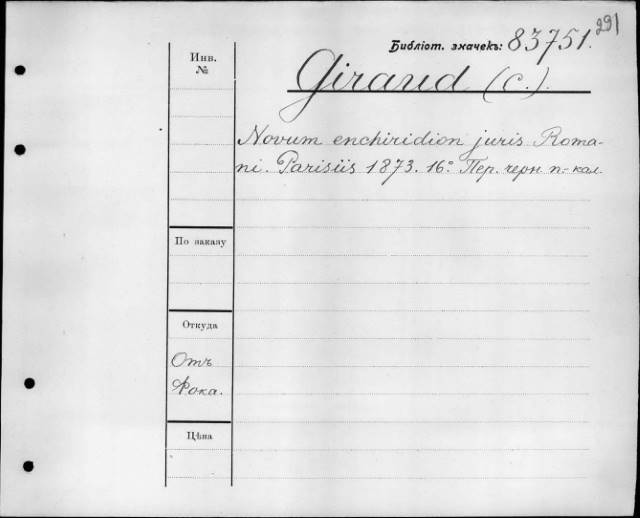 291
Библіот. значекъ: 83751.
Инв.
№
Giraud (C.).
Novum enchiridion juris Roma-
ni. Parisiis 1873. 16° Пер. черн п.-кал.
По заказу
Откуда
Отъ
Фока.
Цѣна